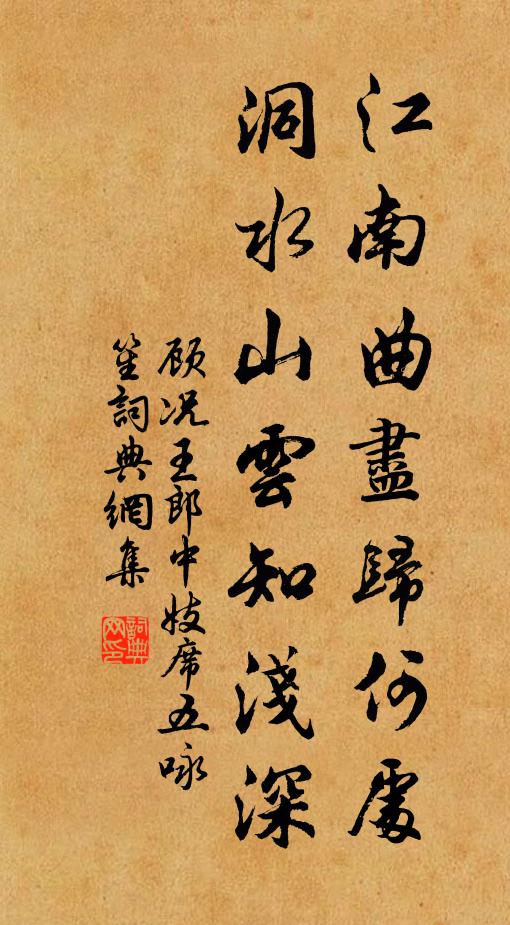 江南曲盡歸何處
洞水山雲知淺深
顧况王郎中妓席五咏
笙詞典網集
詞典網印